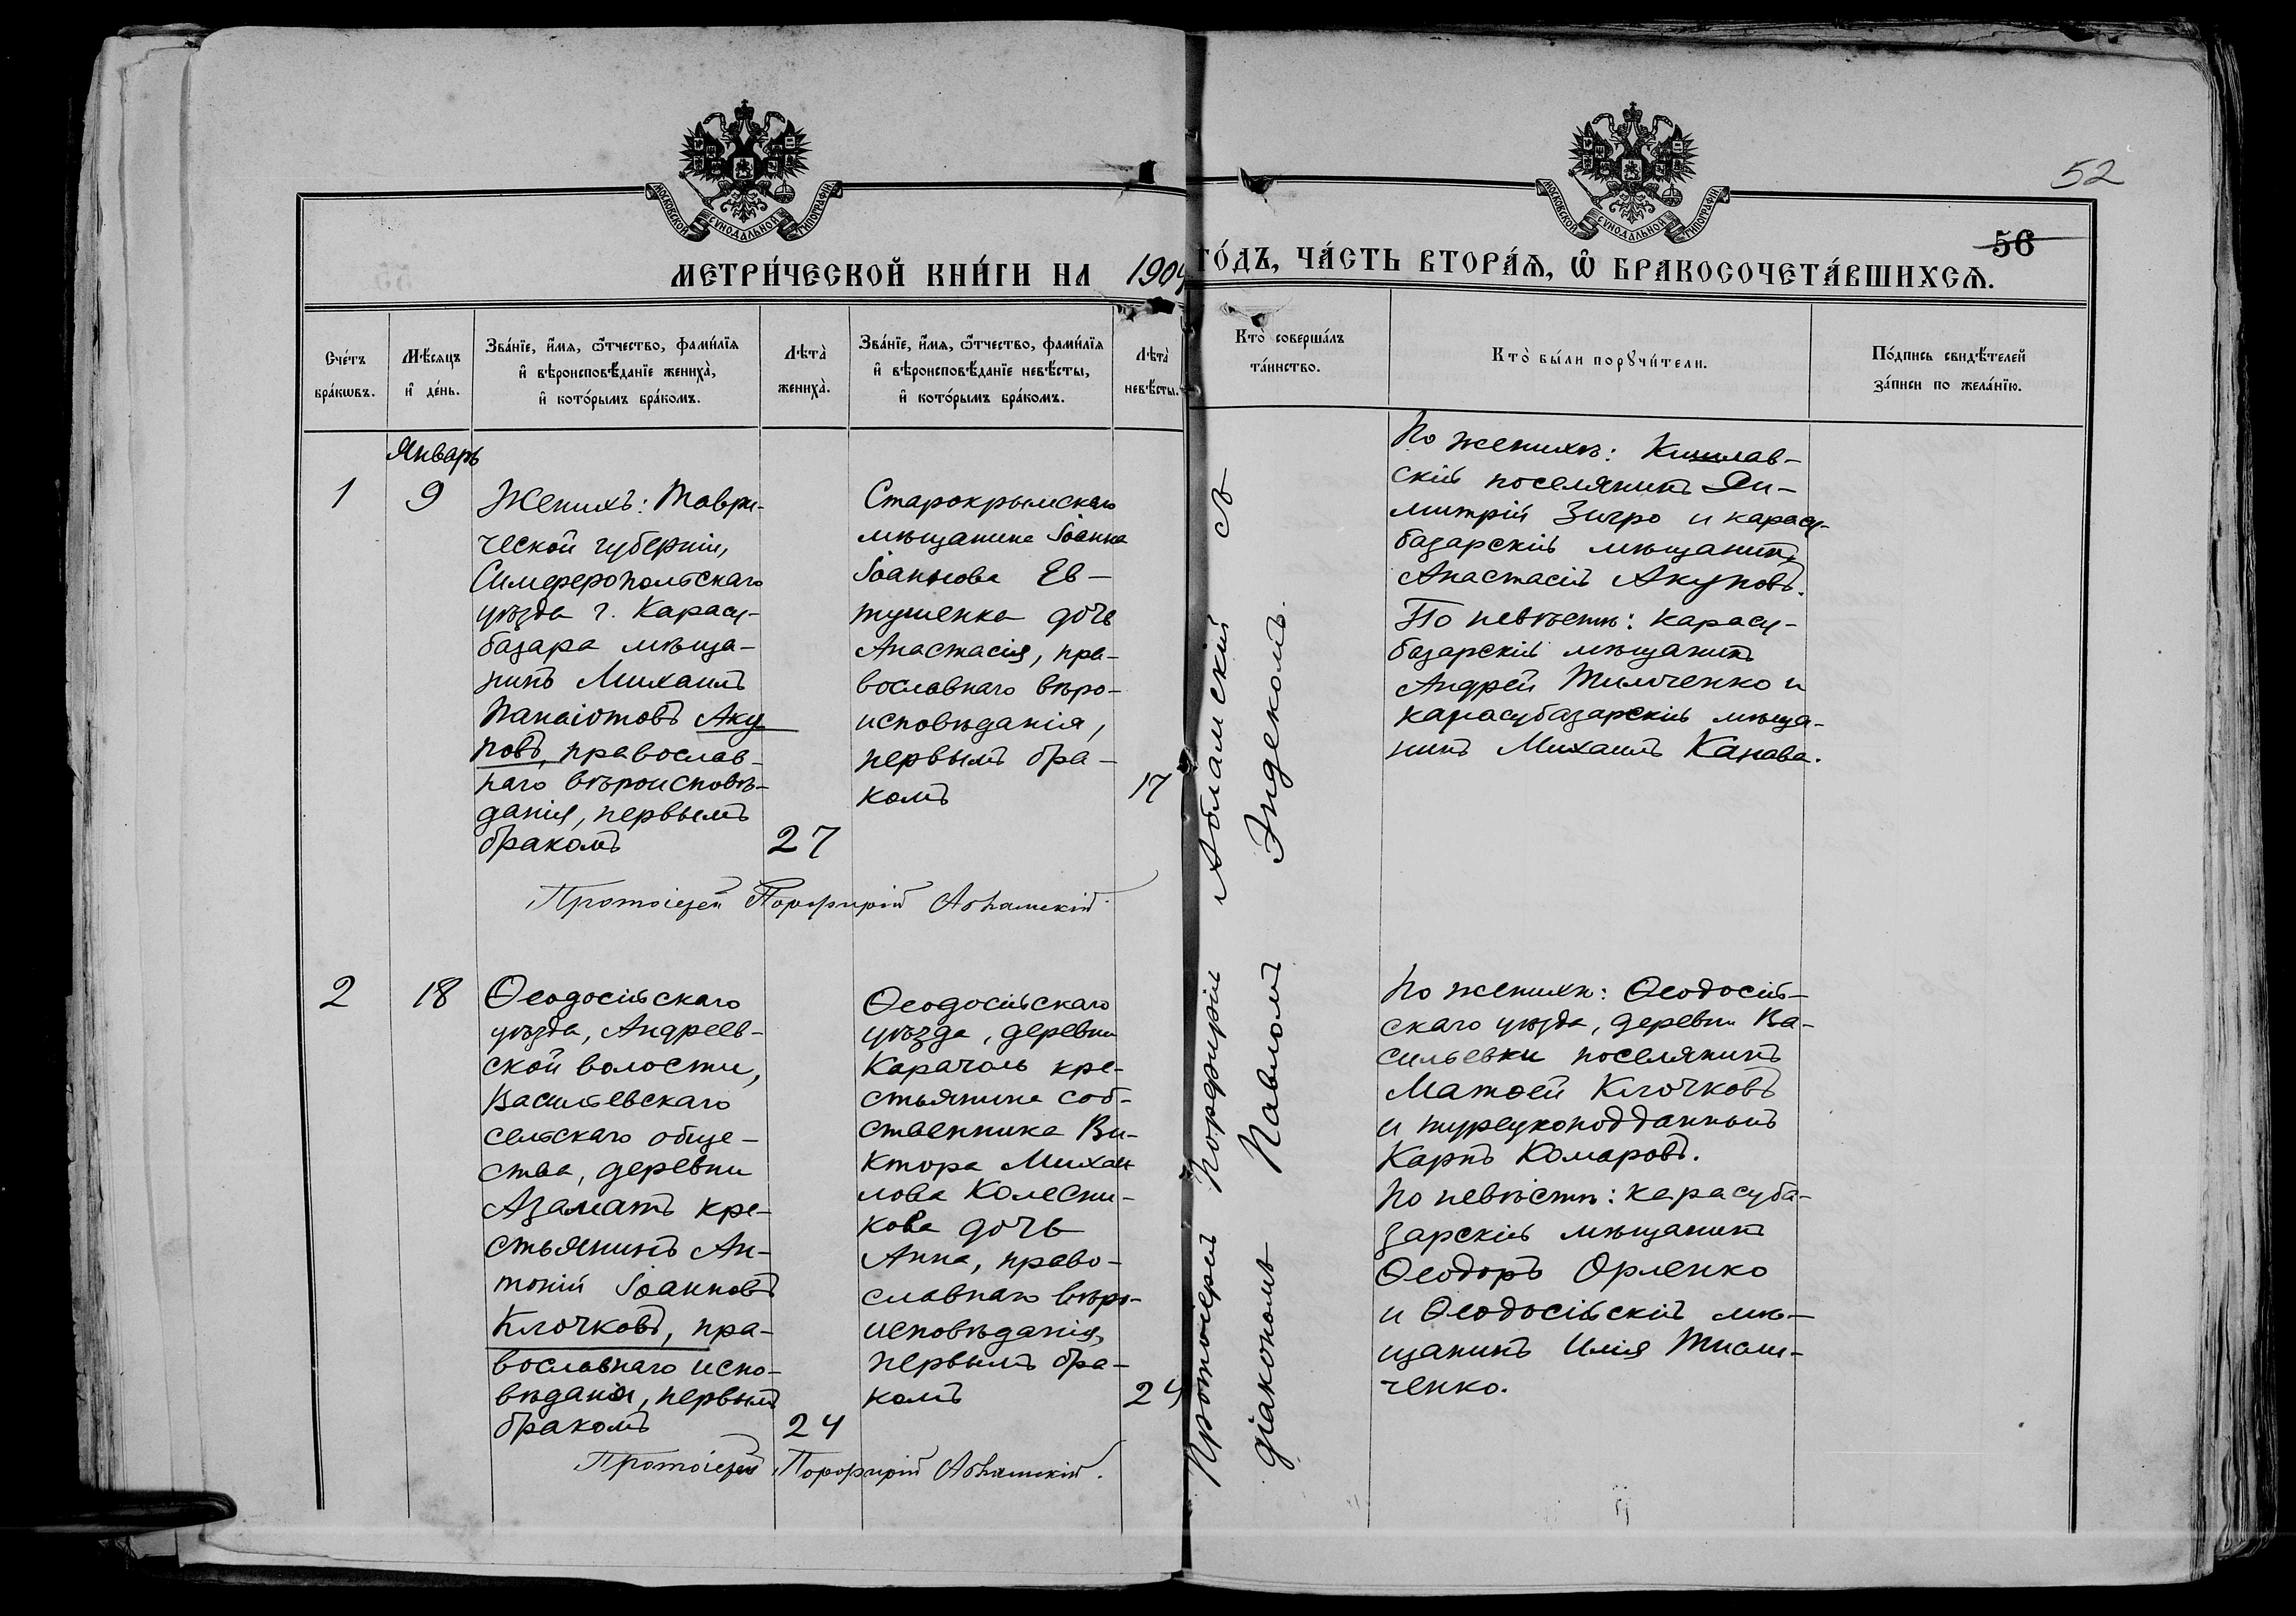 МОСКОВСКОЙ СѴНОДАЛЬНОЙ ТИПОГРАФІИ
МОСКОВСКОЙ СѴНОДАЛЬНОЙ ТИПОГРАФІИ
52
56
МЕТРИ́ЧЕСКОЙ КНИ́ГИ НА 1904 ГО́ДЪ, ЧА́СТЬ ВТОРА́Ѧ, Ѡ БРАКОСОЧЕТА́ВШИХСѦ.
Сче́тъ
бра́кѡвъ.
Мѣ́сѧцъ
и де́нь.
Зва́нїе, и́мѧ, ѻ́тчество, фами́лїѧ
и вѣроисповѣ́данїе жениха̀,
и кото́рымъ бра́комъ.
Лѣта̀
жениха̀.
Зва́нїе, и́мѧ, ѻ́тчество, фами́лїѧ
и вѣроисповѣ́данїе невѣ́сты,
и кото́рымъ бра́комъ.
Лѣта̀
невѣ́сты.
Кто̀ соверша́лъ
та́инство.
Кто̀ бы́ли порꙋчи́тели.
По́дпись свидѣ́телей
за́писи по жела́нїю.
Январь
1
9
Женихъ: Таври-
ческой губерніи,
Симферопольскаго
уѣзда г. Карасу-
базара мѣща-
нинъ Михаилъ
Панаіотовъ Аку-
повъ, православ-
наго вѣроисповѣ-
данія, первымъ
бракомъ
27
Старокрымскаго
мѣщанина Іоанна
Іоаннова Ев-
тушенка дочь
Анастасія, пра-
вославнаго вѣро-
исповѣданія,
первымъ бра-
комъ
17
Протоіерей Порфирій Абламскій съ
діакономъ Павломъ Эндекомъ.
По женихѣ: Кишлав-
скій поселянинъ Ди-
митрій Зигро и карасу-
базарскій мѣщанинъ
Анастасій Акуповъ.
По невѣстѣ: карасу-
базарскій мѣщанинъ
Андрей Тимченко и
карасубазарскій мѣща-
нинъ Михаилъ Канава.
Протоіерей Порфирій Абламскій.
2
18
Ѳеодосійскаго
уѣзда, Андреев-
ской волости,
Васильевскаго
сельскаго обще-
ства, деревни
Азаматъ кре-
стьянинъ Ан-
тоній Іоанновъ
Клочковъ, пра-
вославнаго испо-
вѣданія, первымъ
бракомъ
24
Ѳеодосійскаго
уѣзда, деревни
Карачоль кре-
стьянина соб-
ственника Ви-
ктора Михаи
лова Колесни-
кова дочь
Анна, право-
славнаго вѣро-
исповѣданія,
первымъ бра-
комъ
24
По женихѣ: Ѳеодосій-
скаго уѣзда, деревни Ва-
сильевки поселянинъ
Матѳей Клочковъ
и турецкоподданный
Карпъ Комаровъ.
По невѣстѣ: карасуба-
зарскій мѣщанинъ
Ѳеодоръ Орленко
и Ѳеодосійскій мѣ-
щанинъ Илія
ченко.
Протоіерей Порфирій Абламскій.